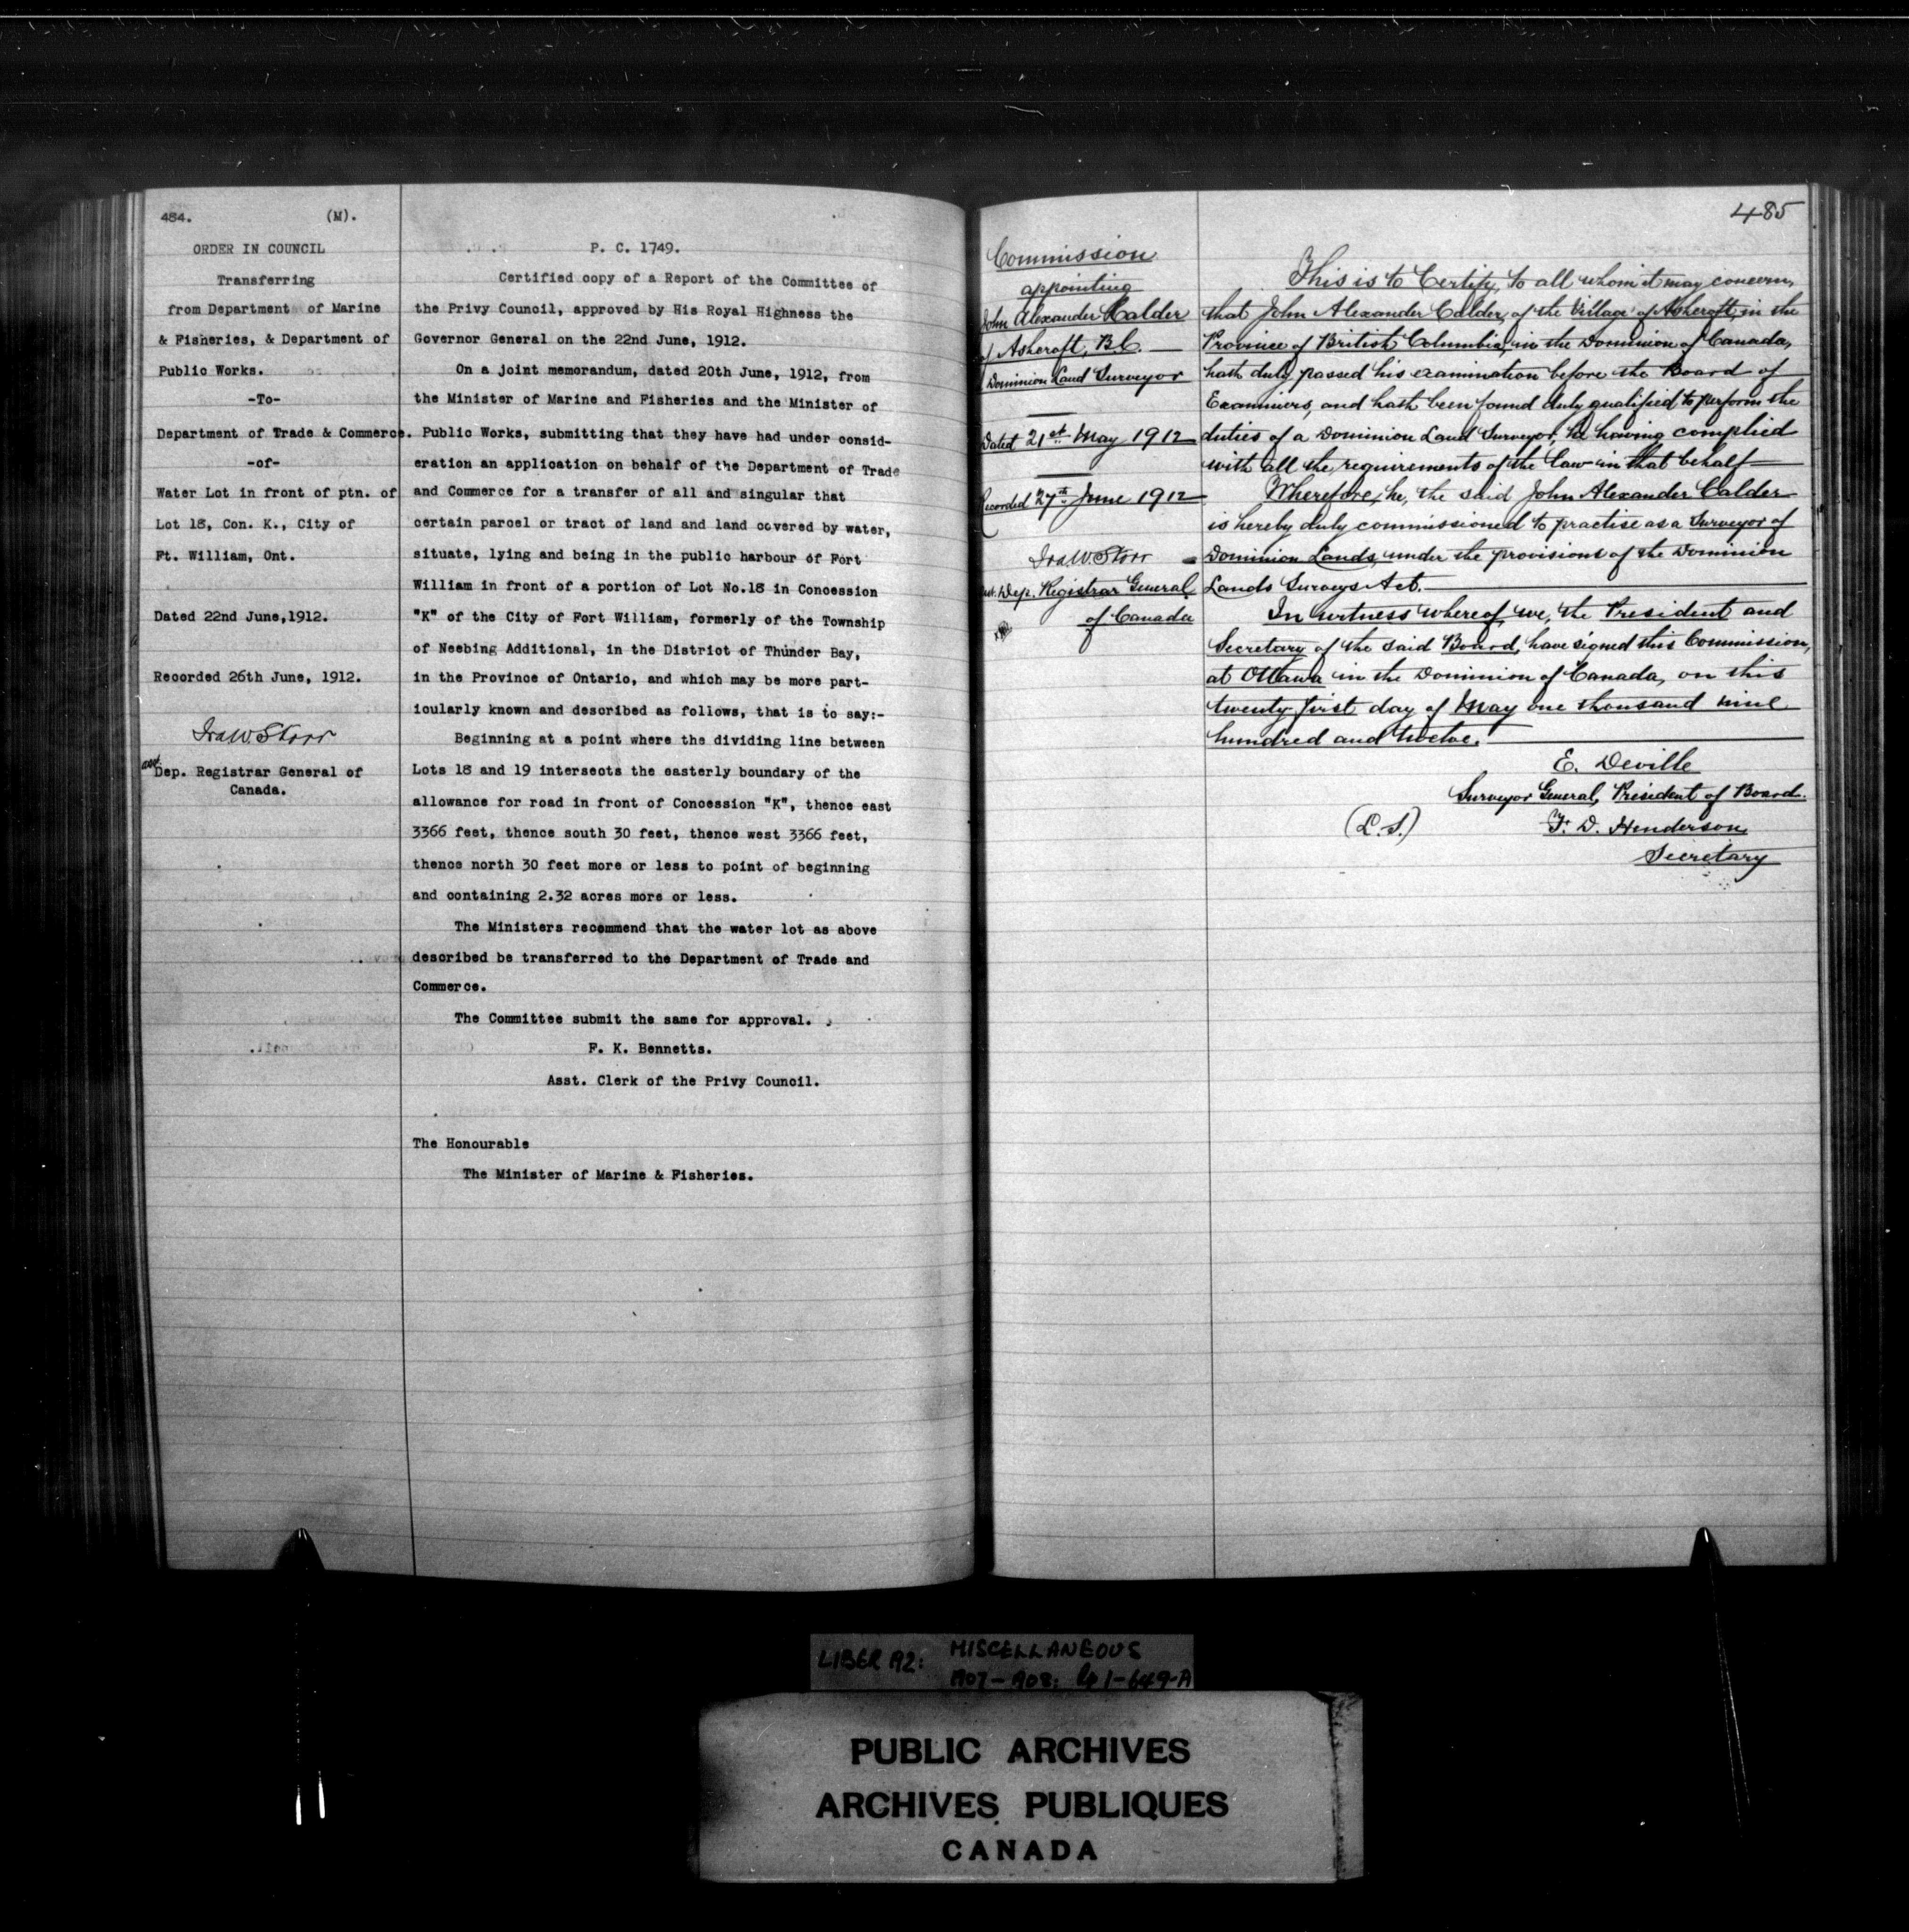 484.
(M).
ORDER IN COUNCIL
Transferring
from Department of Marine
& Fisheries, & Department of
Public Works.
-To-
Department of Trade & Commerce.
-of-
Water Lot in front of ptn. of
Lot 18, Con. K., City of
Ft. William, Ont.
Dated 22nd June,1912.
Recorded 26th June, 1912.
Ira W. Storr
Dep. Registrar General of
Canada.
P. C. 1749.
Certified copy of a Report of the Committee of
the Privy Council, approved by His Royal Highness the
Governor General on the 22nd June, 1912.
On a joint memorandum, dated 20th June, 1912, from
the Minister of Marine and Fisheries and the Minister of
Public Works, submitting that they have had under consid-
eration an application on behalf of the Department of Trade
and Commerce for a transfer of all and singular that
certain parcel or tract of land and land covered by water,
situate, lying and being in the public harbour of Fort
William in front of a portion of Lot No.18 in Concession
"K" of the City of Fort William, formerly of the Township
of Neebing Additional, in the District of Thunder Bay,
in the Province of Ontario, and which may be more part-
icularly known and described as follows, that is to say:-
Beginning at a point where the dividing line between
Lots 18 and 19 intersects the easterly boundary of the
allowance for road in front of Concession "K", thence east
3366 feet, thence south 30 feet, thence west 3366 feet,
thence north 30 feet more or less to point of beginning
and containing 2.32 acres more or less.
The Ministers recommend that the water lot as above
described be transferred to the Department of Trade and
Commerce.
The Committee submit the same for approval.
F. K. Bennetts.
Asst. Clerk of the Privy Council.
The Honourable
The Minister of Marine & Fisheries.
485
Commission
appointing
John Alexander Calder
of Ashcroft, B.C.
Dominion Land Surveyor
Dated 21st May 1912
Recorded 27th June 1912
Ira W. Storr
Dep. Registrar General
of Canada
This is to Certify, to all whom it may concern,
that John Alexander Calder, of the Village of Ashcroft, in the
Province of British Columbia, in the Dominion of Canada,
hath duly passed his examination before the Board of
Examiners, and hath been found duly qualified to perform the
duties of a Dominion Land Surveyor, he having complied
with all the requirements of the law in that behalf
Wherefore, he, the said John Alexander Calder
is hereby duly commissioned to practise as a Surveyor of
Dominion Lands, under the provisions of the Dominion
Lands Surveys Act.
In witness whereof, we, the President and
Secretary of the said Board, have signed this Commission,
at Ottawa in the Dominion of Canada, on this
twenty first day of May one thousand nine
hundred and twelve.
E. Deville
Surveyor General, President of Board.
(L.S.)
F. D. Henderson
Secretary
LIBER 192: MISCELLANEOUS
PUBLIC ARCHIVES
ARCHIVES PUBLIQUES
CANADA